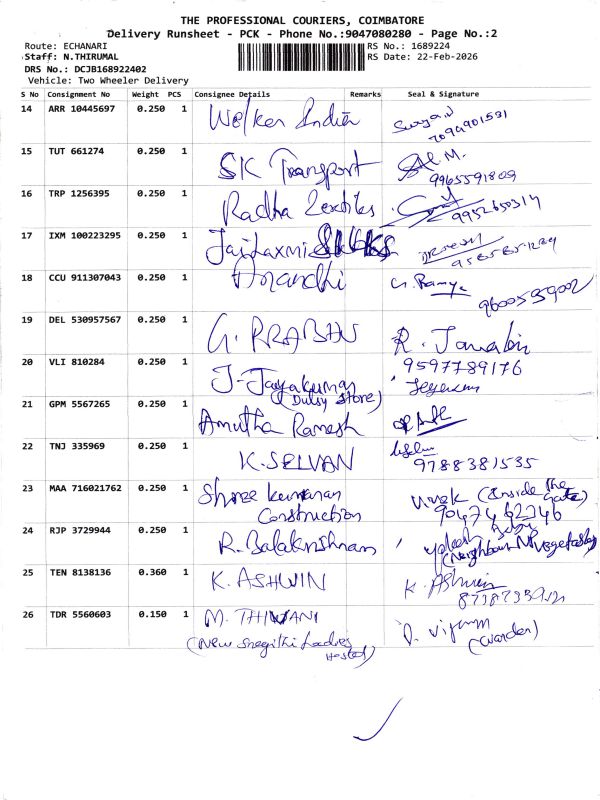 THE PROFESSIONAL COURIERS, COIMBATORE
Delivery Runsheet - PCK - Phone No.:9047080280 - Page No.:2
Route: ECHANARI
RS No.: 1689224
Staff: N.THIRUMAL
RS Date: 22-Feb-2026
DRS No.: DCJB168922402
Vehicle: Two Wheeler Delivery
S No Consignment No Weight PCS Consignee Details Remarks Seal & Signature
14 ARR 10445697 0.250 1 India
15 TUT 661274 0.250 1 SK Transport
9965591809
16 TRP 1256395 0.250 1 Radha
17 IXM 100223295 0.250 1 Jai Laxmi
18 CCU 911307043 0.250 1 Anandhi G. Ramya
19 DEL 530957567 0.250 1 G. PRABHU R.
9597789176
20 VLI 810284 0.250 1 J. Jayakumar
(Dutsy Store)
21 GPM 5567265 0.250 1 Amutha Ramesh
22 TNJ 335969 0.250 1 K. SELVAN
9788381535
23 MAA 716021762 0.250 1 Shree kumaran (Inside The Gate)
Construction 9047462746
24 RJP 3729944 0.250 1 R. Balakrishnan
(Neighbour
25 TEN 8138136 0.360 1 K. ASHWIN K. Ashwin
26 TDR 5560603 0.150 1 M. THIVANI
(New Snegithi Ladies Hostel)
(warden)